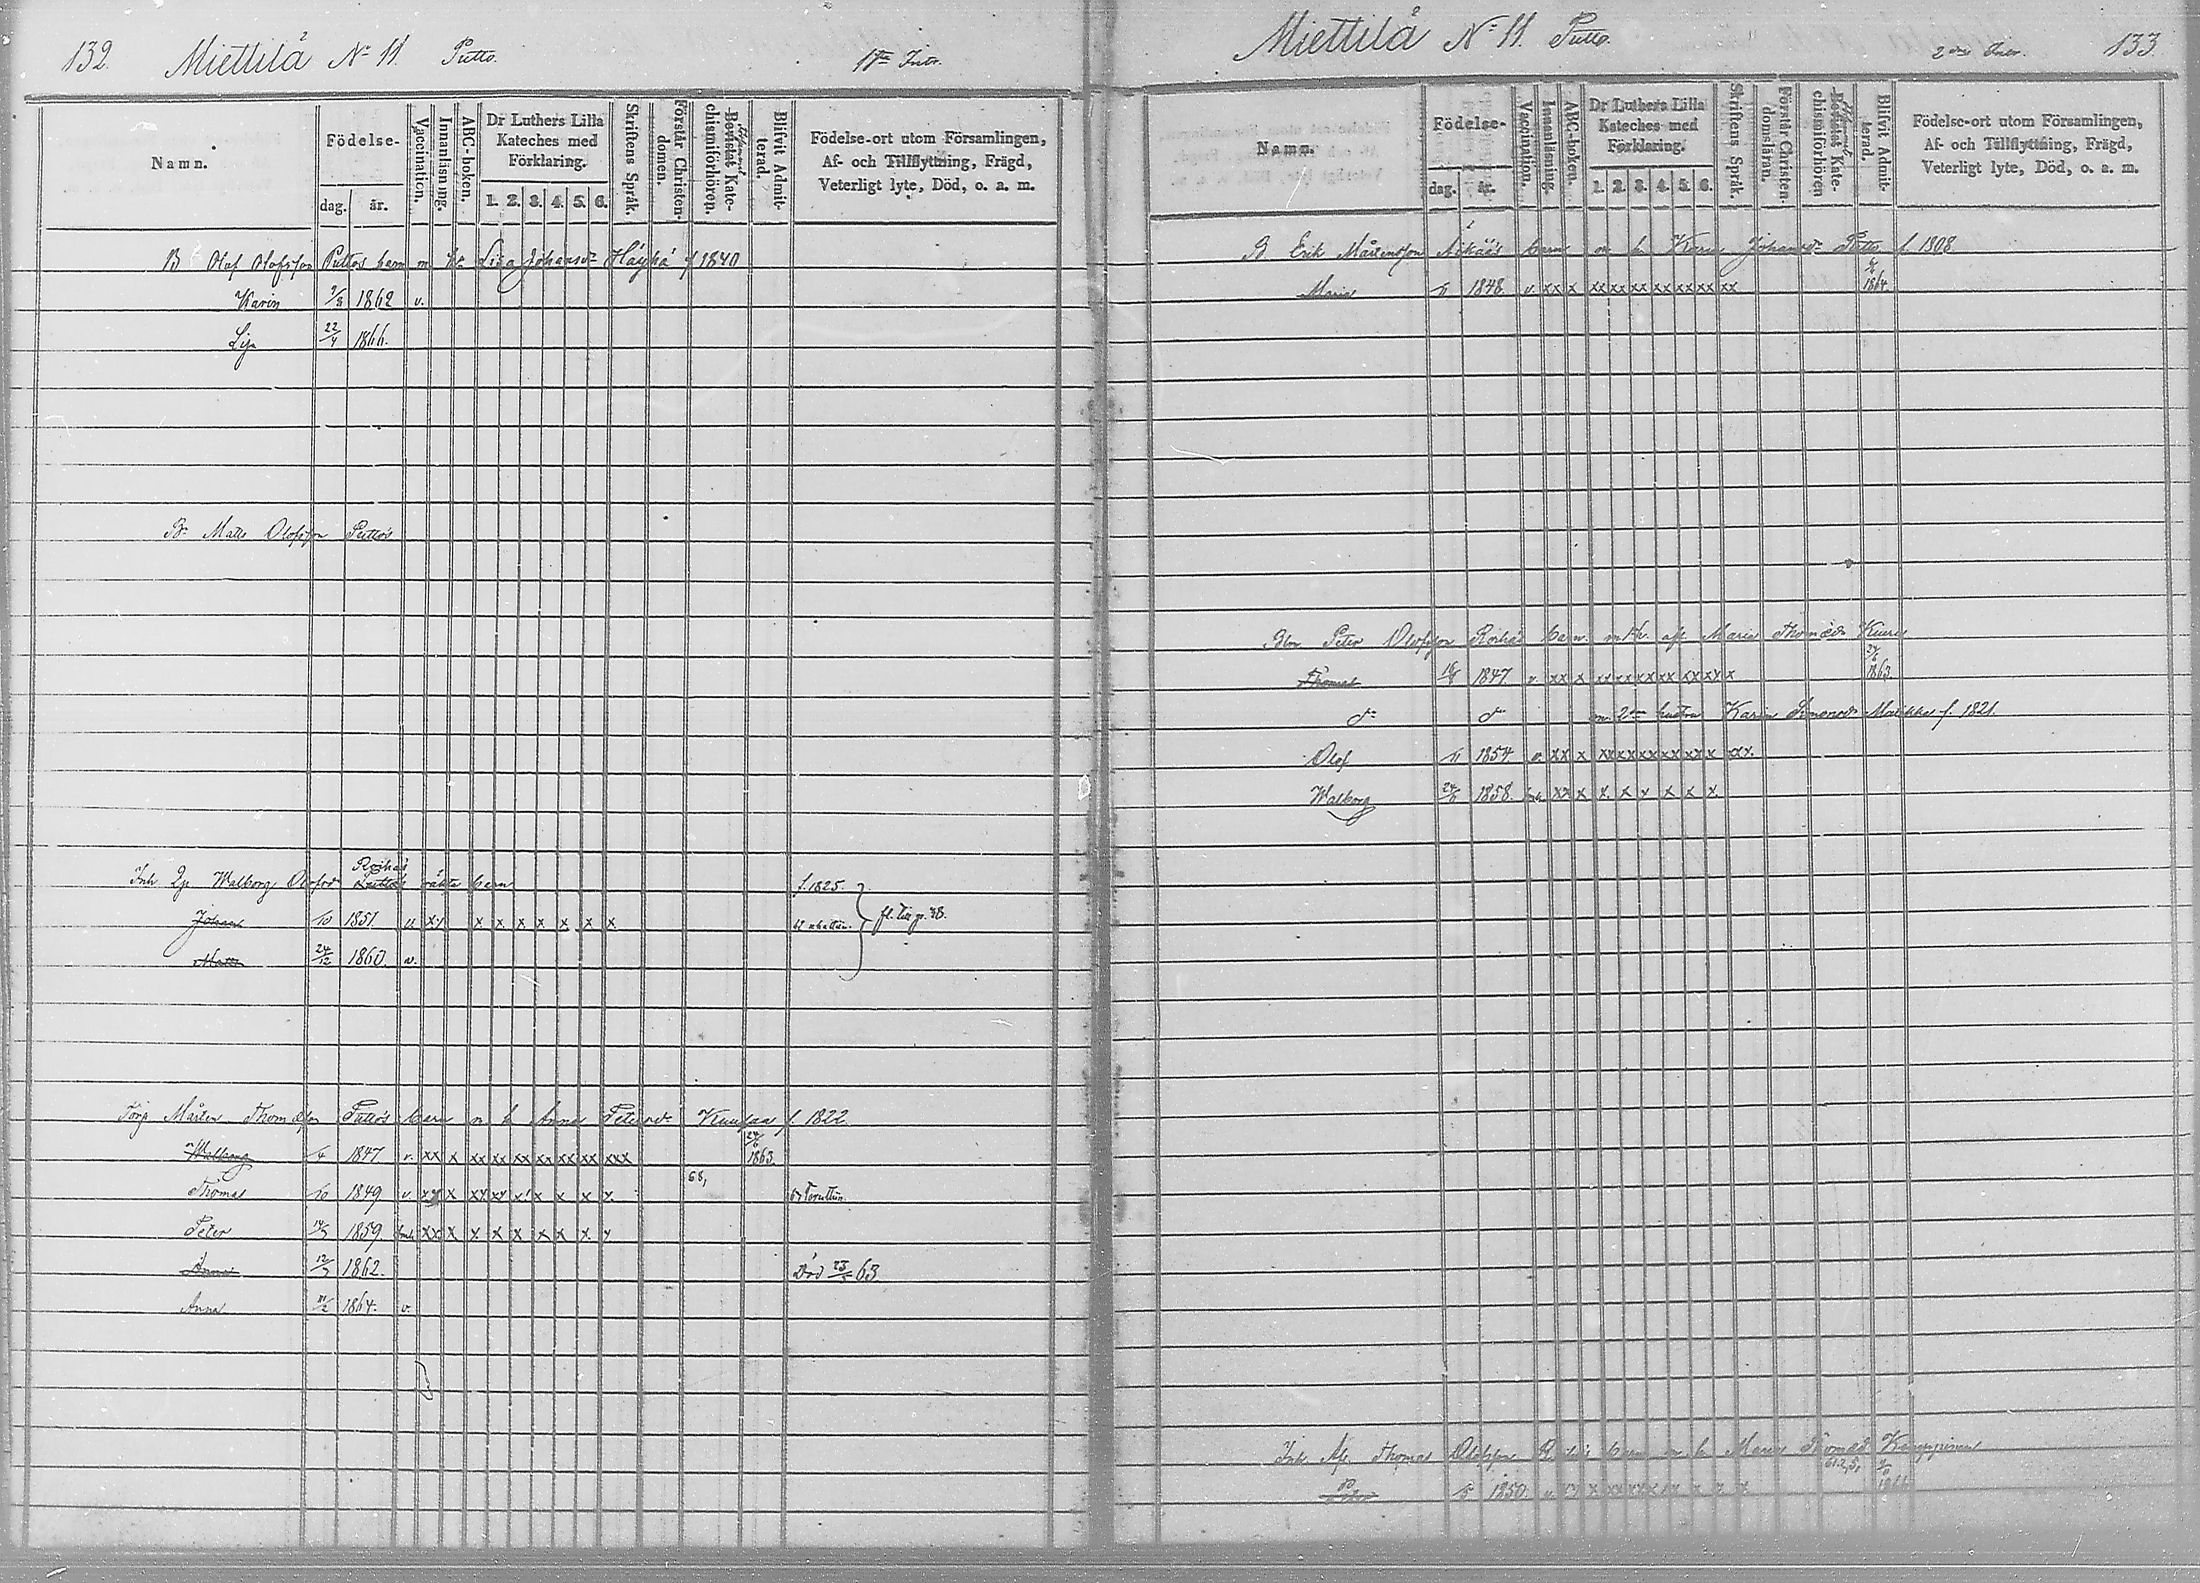 132. Miettilä No 11. Putto. 1sta Intr.
Namn.
Födelse-
dag. år.
Vaccination.
Innanläsning.
ABC-boken.
Dr Luthers Lilla Kateches med Förklaring.
1. 2. 3. 4. 5. 6.
Skriftens Språk.
Förstår Christendomen.
Bevistat Katechismiförhören.
Blifvit Admitterad.
Födelse-ort utom Församlingen,
Af- och Tillflyttning, Frägd,
Veterligt lyte, Död, o. a. m.
B Olof Olofsson Puttos barn m. h. Lisa Johansdr Häyhä f 1840
Karin 9/8 1862 v.
Lisa 22/4 1866.
Br Matts Olofsson Puttos
Inh Qp Walborg Olofsdr Roihas oäkta barn f. 1825.
Johan /10 1851 v. xx x x x x x x x fl. till p. 38.
Matts 24/12 1860. v.
Torp Mårten Thomasson Puttos barn m h Anna Petersdr Kuusaa f. 1822
Walborg /4 1847 v. xx x xx xx xx xx xx xx xxx 24/6 1863.
Thomas /10 1849 v. xx x xx xx x x x x x 68,
Peter 14/5 1859 xx x x x x x x x x
Anna 12/7 1862. Död 23/5 63
Anna 11/2 1864. v.
Miettilä No 11. Putto. 2dra Intr. 133
Namn.
Födelse-
dag. år.
Vaccination.
Innanläsning.
ABC-boken.
Dr Luthers Lilla Kateches med Förklaring.
1. 2. 3. 4. 5. 6.
Skriftens Språk.
Förstår Christendomsläran.
Bevistat Katechismiförhören
Blifvit Admitterad.
Födelse-ort utom Församlingen,
Af- och Tillflyttning, Frägd,
Veterligt lyte, Död, o. a. m.
B. Erik Mårtensson barn m h Karin Johansdr Putto f. 1808
Maria 1848 v xx x xx xx xx xx xx xx xx 1864.
Peter Olofsson Roihas barn m h. af. Maria Thomasdr
Thomas 16/8 1847 v. xx x xx xx xx xx xx xx x 24/6 1863.
do do m. 2dra hustru Karin Simonsdr f. 1821.
Olof /11 1854 v. xx x xx xx xx xx xx xx xx.
Walborg 24/6 1858. xx x x. x x x x x.
Inh Af. Thomas Olofsson Roihas barn m h Maria Thomasdr Kamppinen
Peter 1850. v.